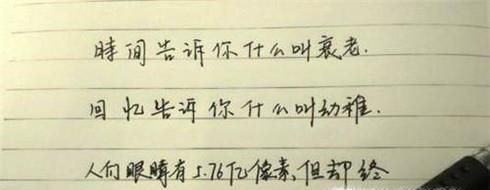 時间告诉你什么叫衰老.
回忆告诉你什么叫幼稚.
人的眼睛有5.76亿像素,但却终